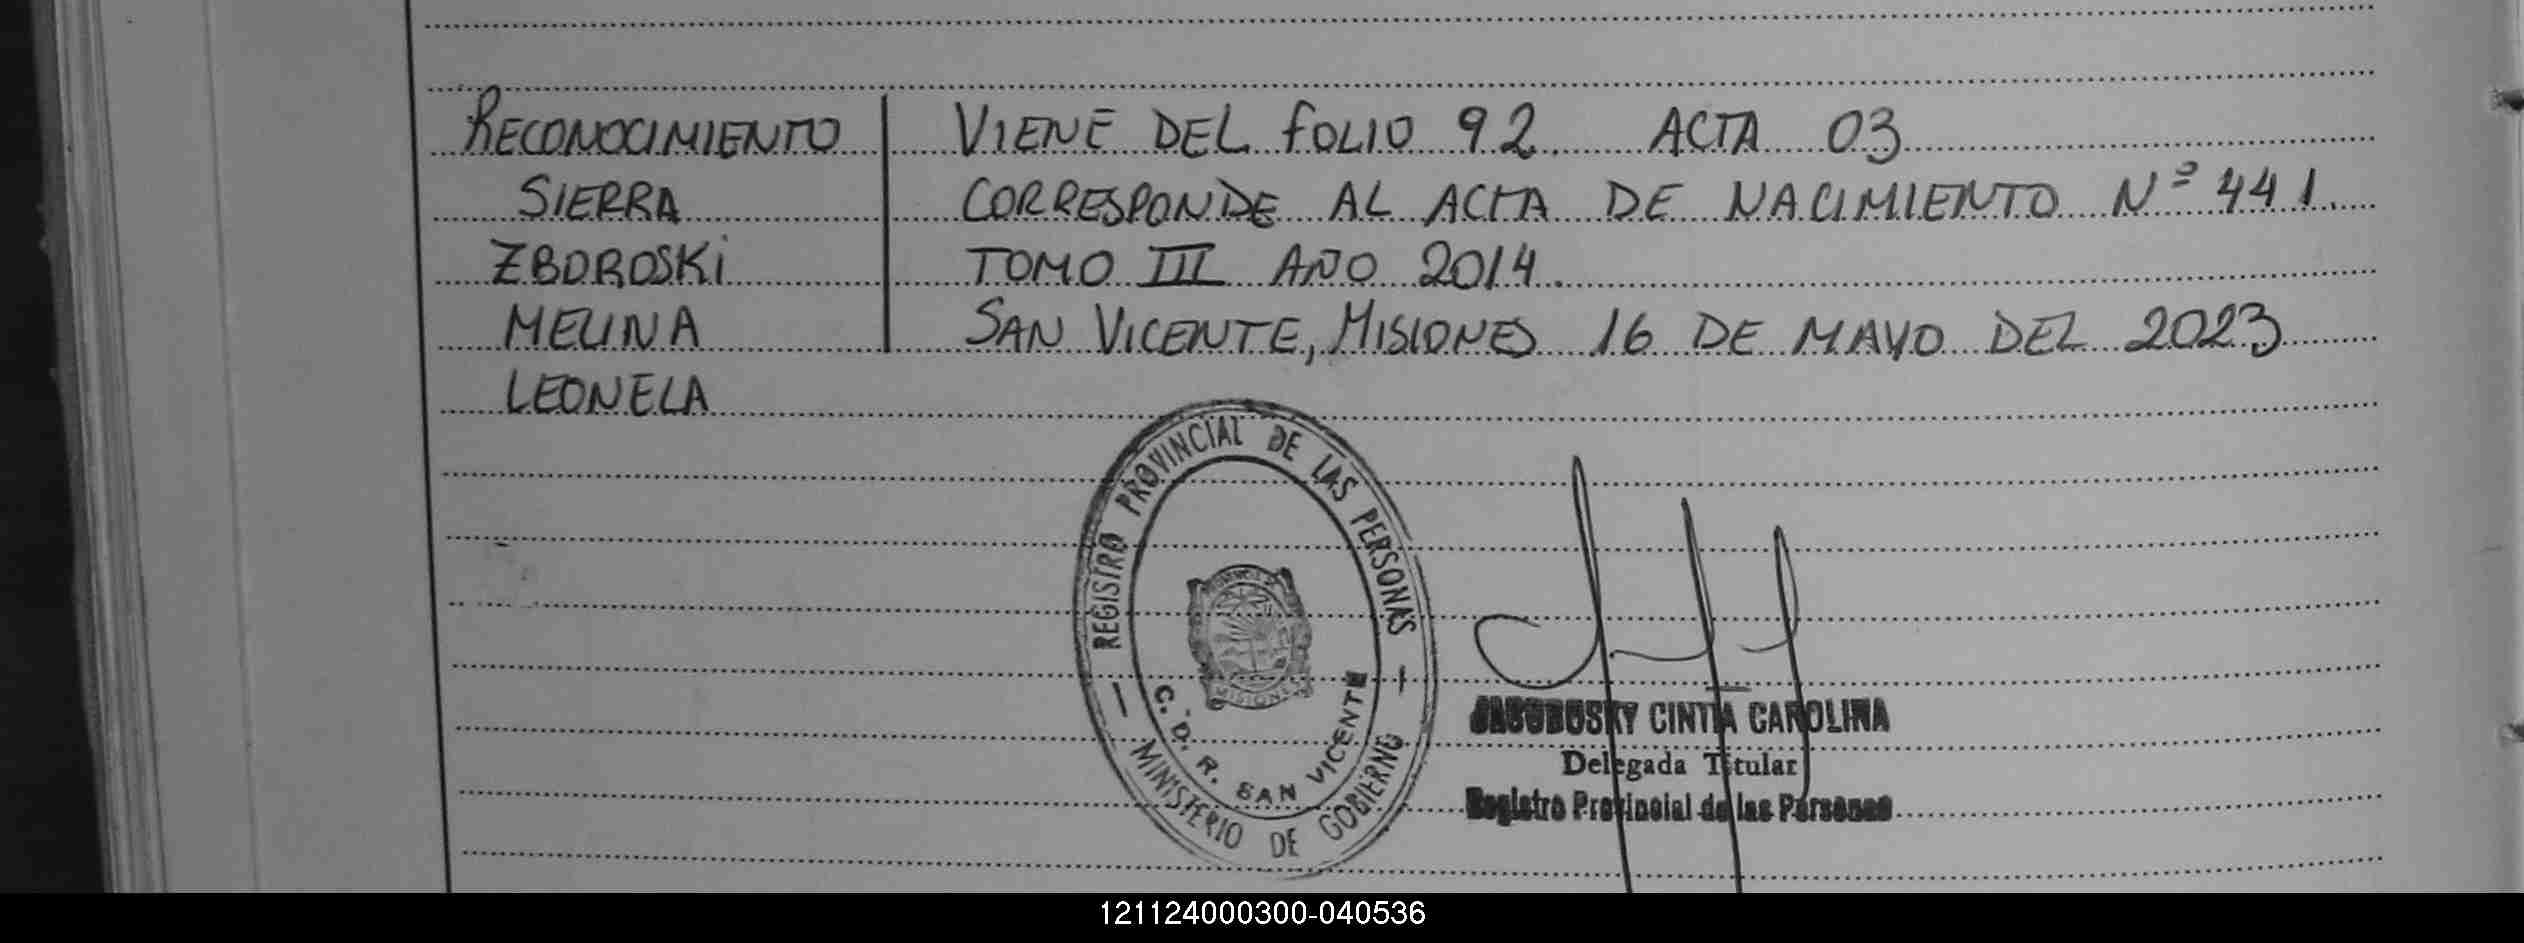 RECONOCIMIENTO
SIERRA
ZBOROSKi
MELINA
LEONELA
VIENE DEL FOLIO 92. ACTA 03
CORRESPONDE AL ACTA DE NACIMIENTO Nº 441.
TOMO III AÑO 2014.
SAN VICENTE, MISIONES 16 DE MAYO DEL 2023
REGISTRO PROVINCIAL DE LAS PERSONAS
MISIONES
C. D. R. SAN VICENTE
MINISTERIO DE GOBIERNO
JACOBOSKY CINTIA CAROLINA
Delegada Titular
Registro Provincial de las Personas
121124000300-040536